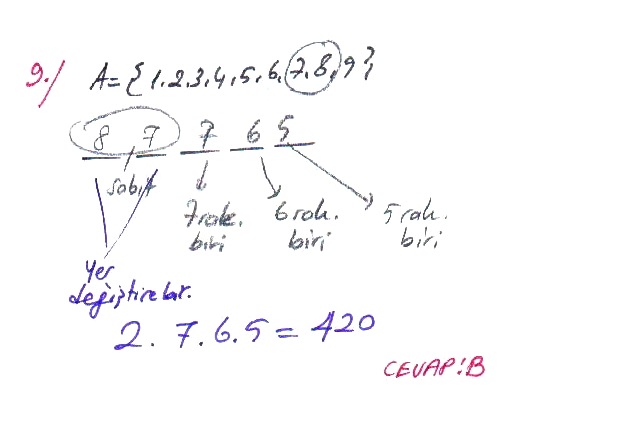 9./ A={1,2,3,4,5,6,7,8,9},
8 7 7 6 5
sabit
7 rak. biri
6 rak. biri
5 rak. biri
Yer
değiştirebilir.
2. 7. 6. 5 = 420
CEVAP: B